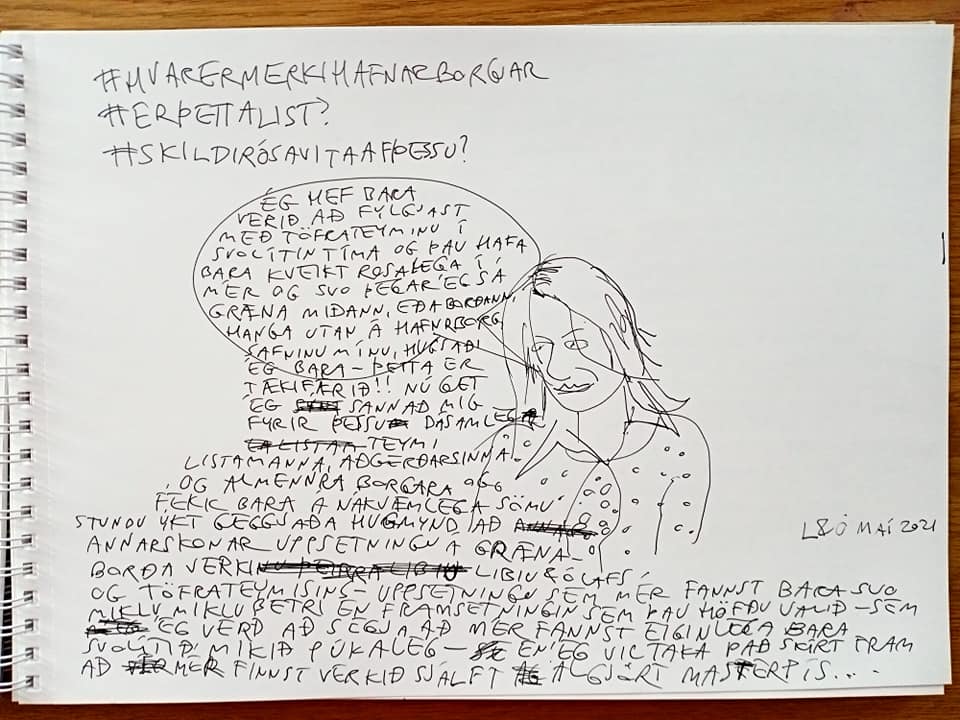 #HVARERMERKIHAFNARBORGAR
#ERÞETTALIST?
#SKILDIRÓSAVITAAFÞESSU?
ÉG HEF BARA
VERIÐ AÐ FYLGJAST
MEÐ TÖFRATEYMINU Í
SVOLÍTIN TÍMA OG ÞAU HAFA
BARA KVEIKT ROSALEGA Í
MÉR OG SVO ÞEGAR ÉG SÁ
GRÆNA MIÐANN, EÐA BORÐANN,
HANGA UTAN Á HAFNRBORG
SAFNINU MÍNU, HUGSAÐI
ÉG BARA - ÞETTA ER
TÆKIFÆRIÐ!! NÚ GET
ÉG SANNAÐ MIG
FYRIR ÞESSU DÁSAMLEGA
TEYMI
LISTAMANNA, AÐGERÐARSINNA
OG ALMENNRA BORGARA OGG
FÉKK BARA Á NÁKVÆMLEGA SÖMU
STUNDU YKT GEGGJAÐA HUGMYND AÐ
ANNARSKONAR UPPSETNINGU Á GRÆNA-
BORÐA VERKI LIBIU & ÓLAFS
OG TÖFRATEYMISINS - UPPSETNINGU SEM MÉR FANNST BARA SVO
MIKLU MIKLU BETRI EN FRAMSETNINGIN SEM ÞAU HÖFÐU VALIÐ - SEM
ÉG VERÐ AÐ SEGJA AÐ MÉR FANNST EIGINLEGA BARA
SVOLÍTIÐ MIKIÐ PÚKALEG - EN ÉG VIL TAKA ÞAÐ SKÍRT FRAM
AÐ MÉR FINNST VERKIÐ SJÁLFT ALGJÖRT MASTERPÍS...
L&Ó MAÍ 2021